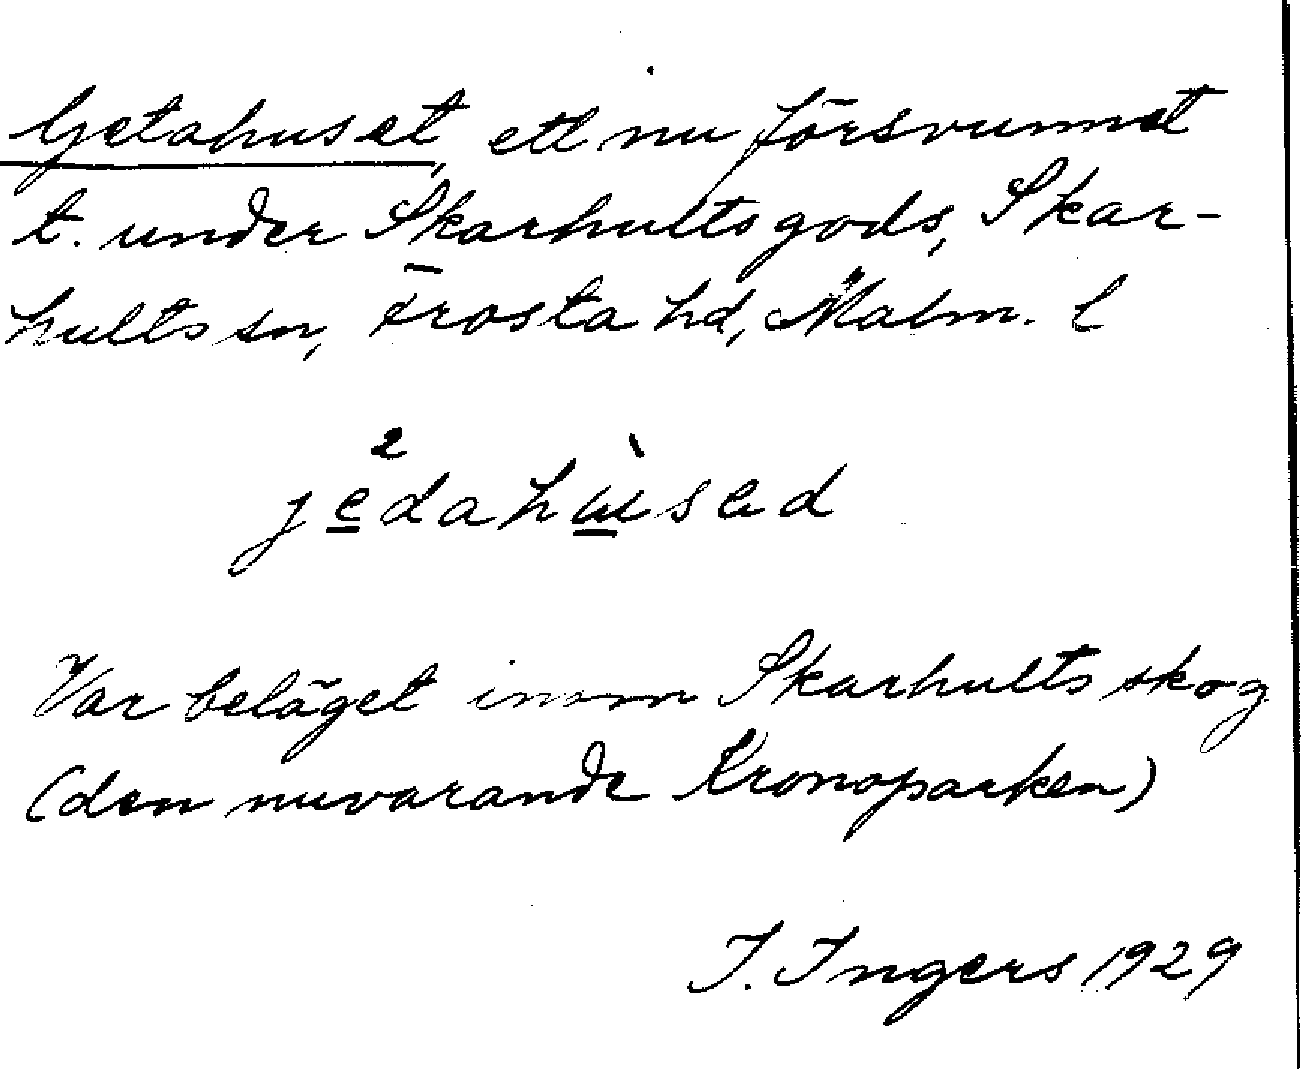 Getahuset, ett nu försvunnet
t. under Skarhultsgods, Skar-
hults sn, Frosta hd, Malm. l
jedahusad
Var beläget inom Skarhults skog
(den nuvarande Kronoparken)
I. Ingers 1929